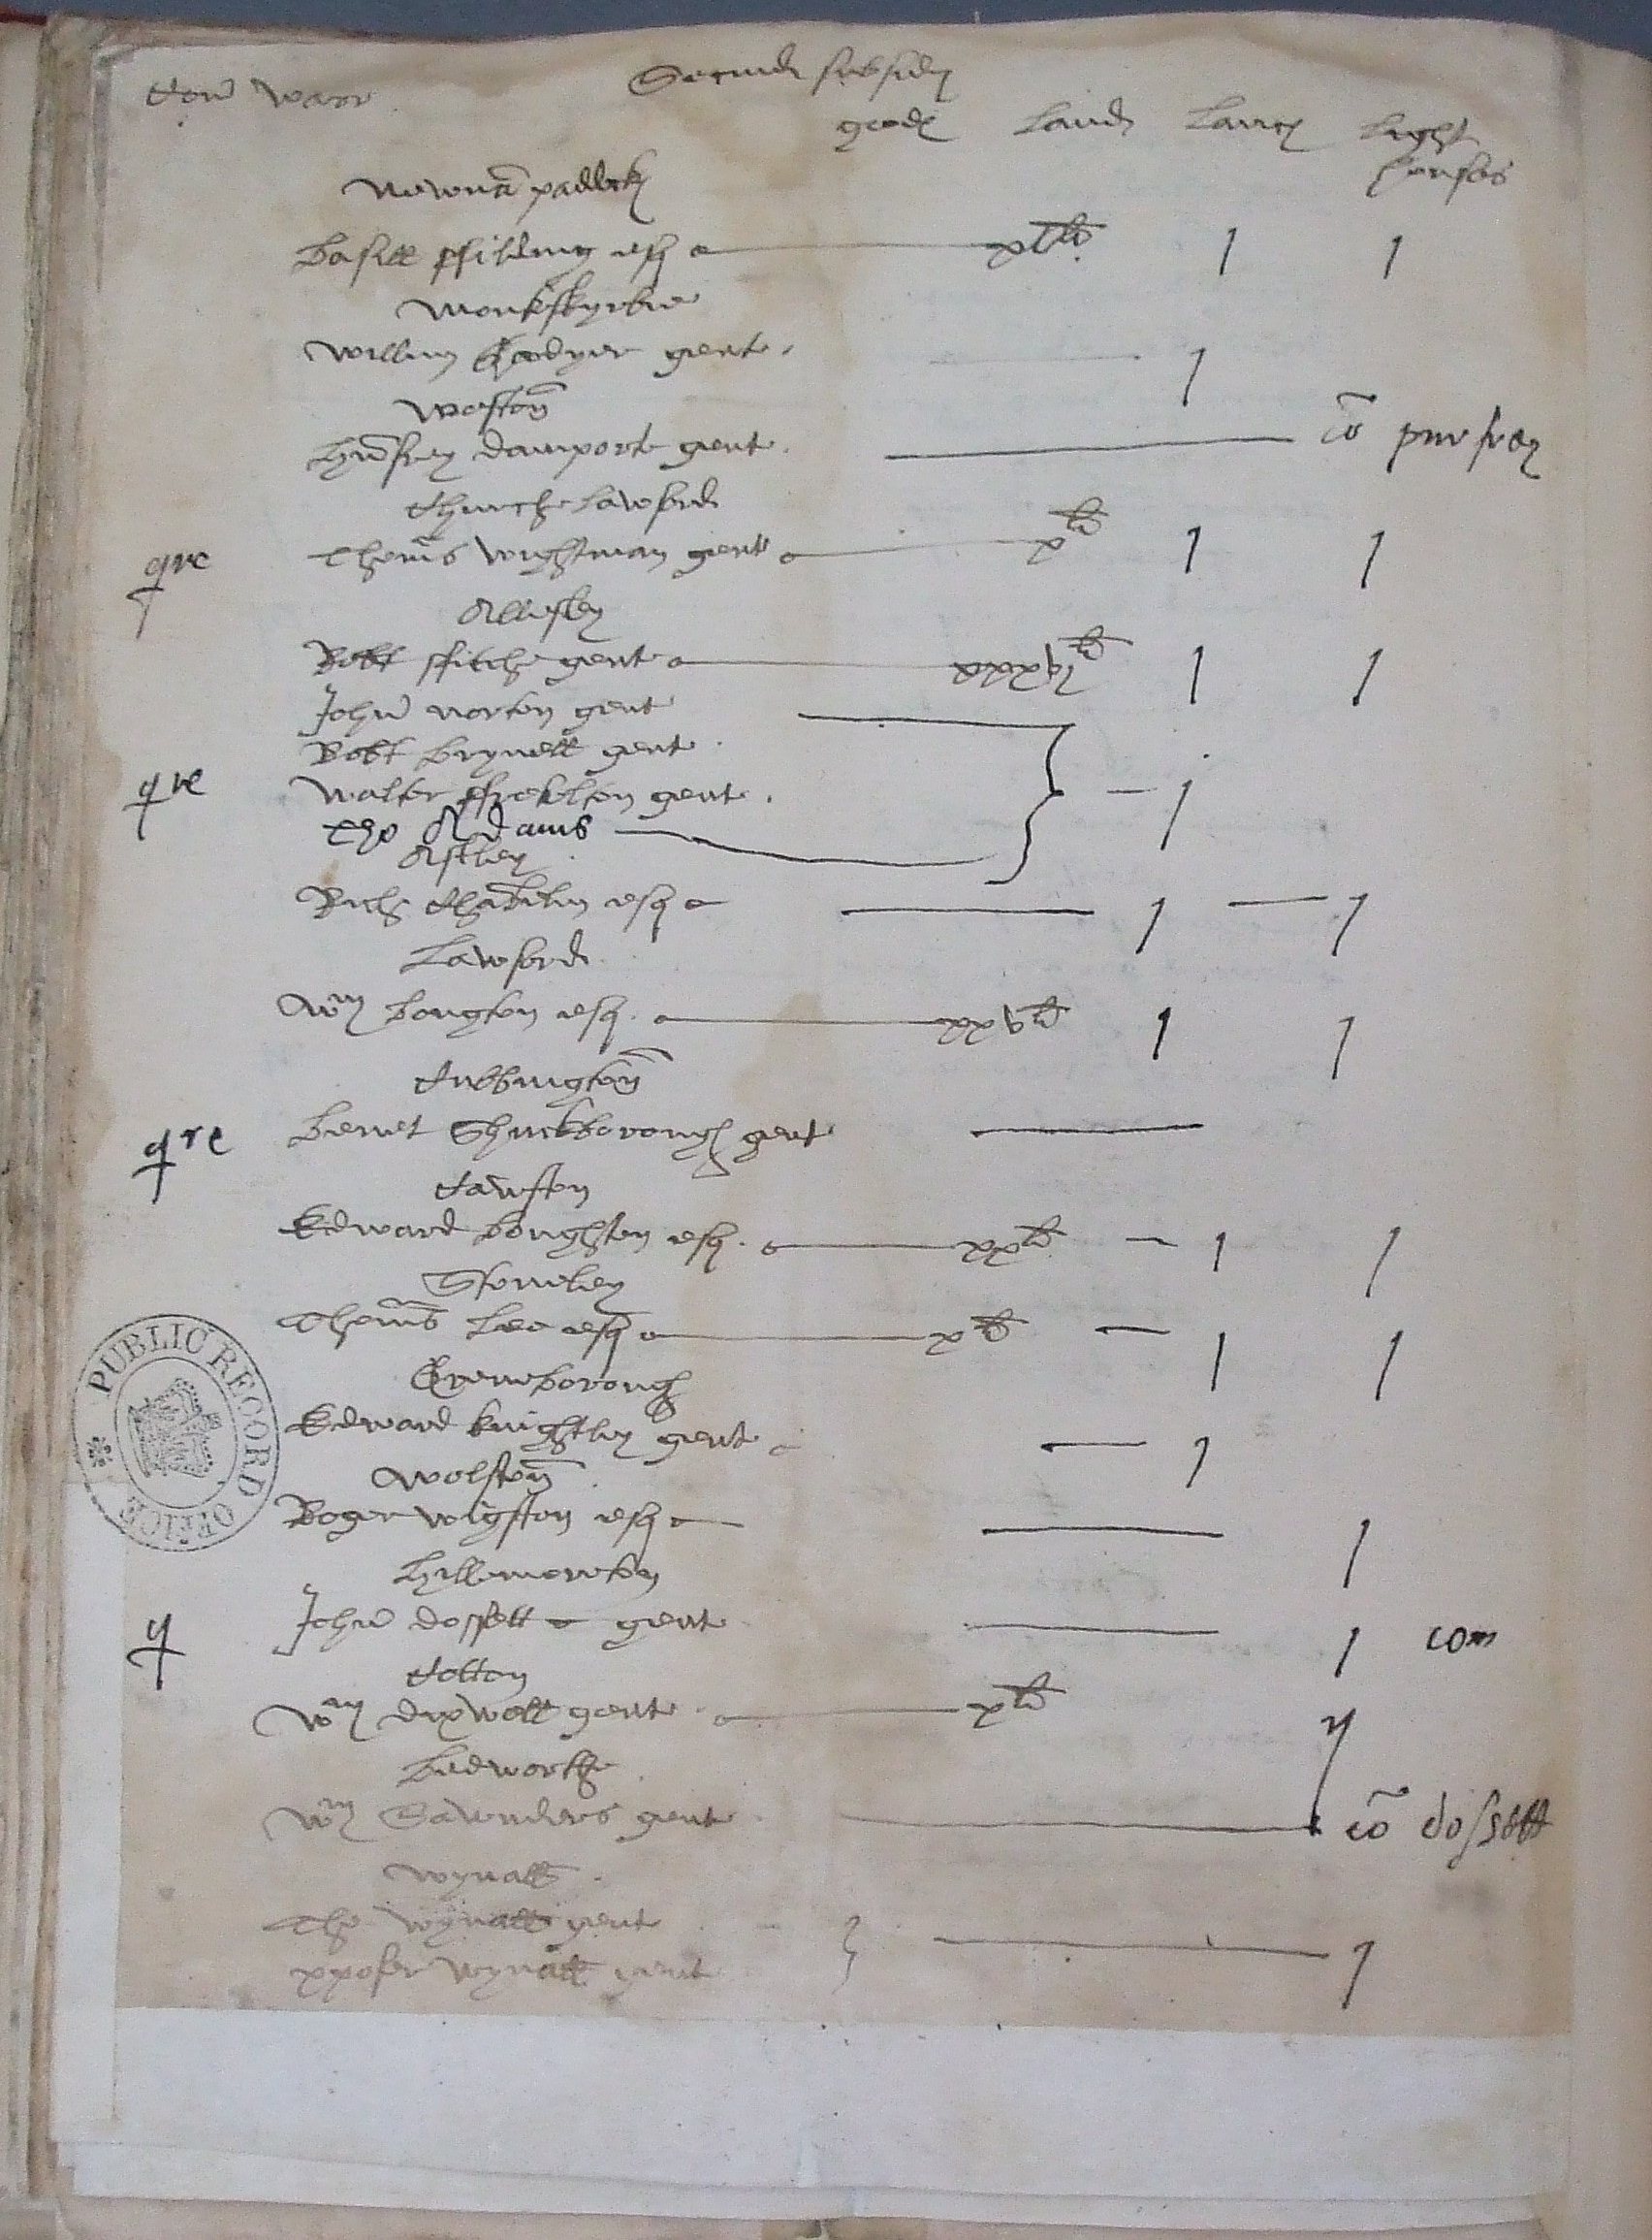 Com̃ Warr
Secund subsidy
goodes Landes Lances Light
horses
Newnã paddocks
Basill ffilding esq xl li 1 1
Monkskyrbie
Willm Goodyer gent 1
Westoñ
Hũfrey Damporte gent cõ purfrey
Churche Lawford
qre Thom̃s Wightman gent x li 1 1
Allesley
Robt ffitche gent xxxvj li 1 1
John Norton gent
Robt Brynell gent
qre Walter ffrekleton gent 1
Tho Adams
Astley
Rich Chãberlin esq 1 1
Lawford
Wm Bougton esq xxv li 1 1
Cubbingtoñ
qre Benet Shuckborough gent
Cawston
Edward Boughton esq xx li 1 1
Stoneley
Thom̃s Leo esq x li 1 1
Greneborough
Edward Knightley gent 1
Wolstoñ
Roger Wigston esq 1
Hyllmorton
q John Dossett gent 1 com
Cotton
Wm Dixwell gent x li
Bedworthe
Wm Sawnders gent cõ dossett
Wynall
Tho Wynall gent
xpofer Wynall gent 1
PUBLIC RECORD OFFICE